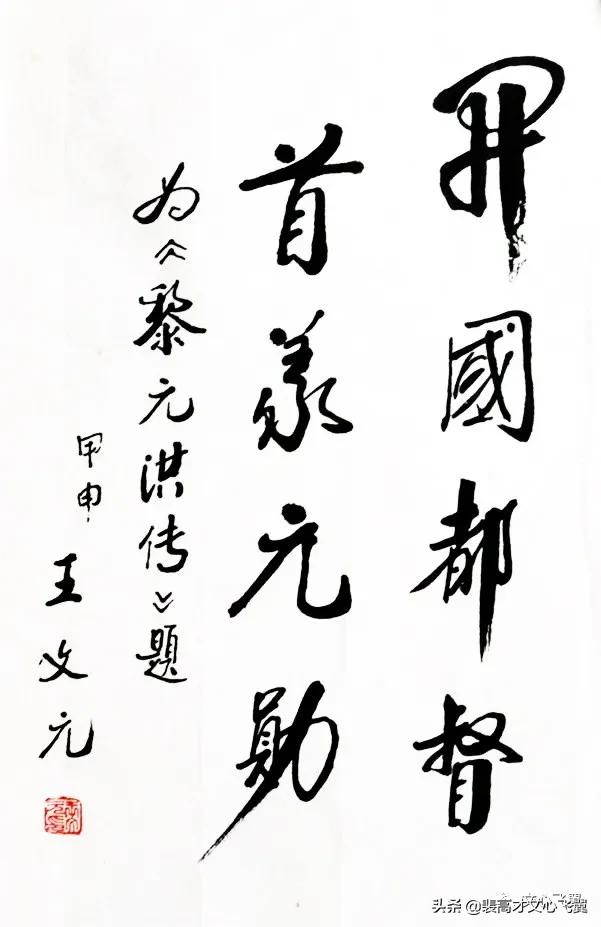 開國都督
首義元勛
为《黎元洪传》題
甲申
王文元
文心飞翼
头条 @裴高才文心飞翼